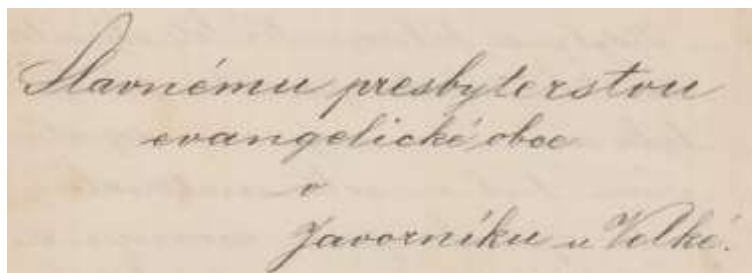 Slavnému presbyterstvu
evangelické obce
v
Javorníku u Velké.